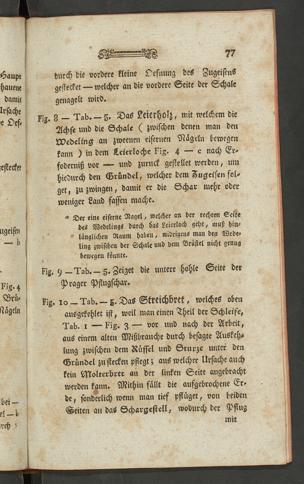 77
durch die vordere kleine Oefnung des Zugeisens
gestecket — welcher an die vordere Seite der Schale
genagelt wird.
Fig. 8 — Tab. — 5. Das Leierholz, mit welchem die
Achse und die Schale ( zwischen denen man den
Wedeling an zweenen eisernen Nägeln bewegen
kann ) in dem Leierloche Fig. 4 — c nach Er-
forderniß vor — und zuruck gestellet werden, um
hiedurch den Gründel, welcher dem Zugeisen fol-
get, zu zwingen, damit er die Schar mehr oder
weniger Land fassen macht.
* Der eine eiserne Nagel, welcher an der rechten Seite
des Wedelings durch das Leierloch geht, muß hin-
länglichen Raum haben, widrigens man den Wed-
ling zwischen der Schale und dem Brüstel nicht genug
bewegen könnte.
Fig. 9 — Tab. — 5. Zeiget die untere hohle Seite der
Prager Pflugschar.
Fig. 10 — Tab. — 5. Das Streichbret, welches oben
ausgekehlet ist, weil man einen Theil der Schleife,
Tab. 1 — Fig. 3 — vor und nach der Arbeit,
aus einem alten Mißbrauche durch besagte Auskeh-
lung zwischen dem Rüssel und Sturze unter den
Gründel zu stecken pflegt; aus welcher Ursache auch
kein Molterbret an der linken Seite angebracht
werden kann. Mithin fällt die aufgebrochene Er-
de, sonderlich wenn man tief pflüget, von beiden
Seiten an das Schargestell, wodurch der Pflug
mit